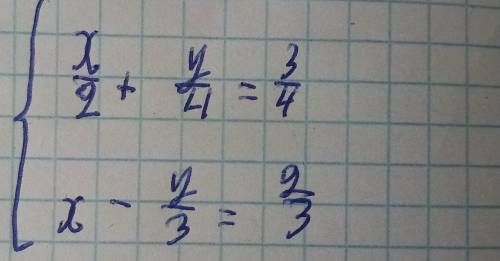 x/2 + y/4 = 3/4
x - y/3 = 2/3